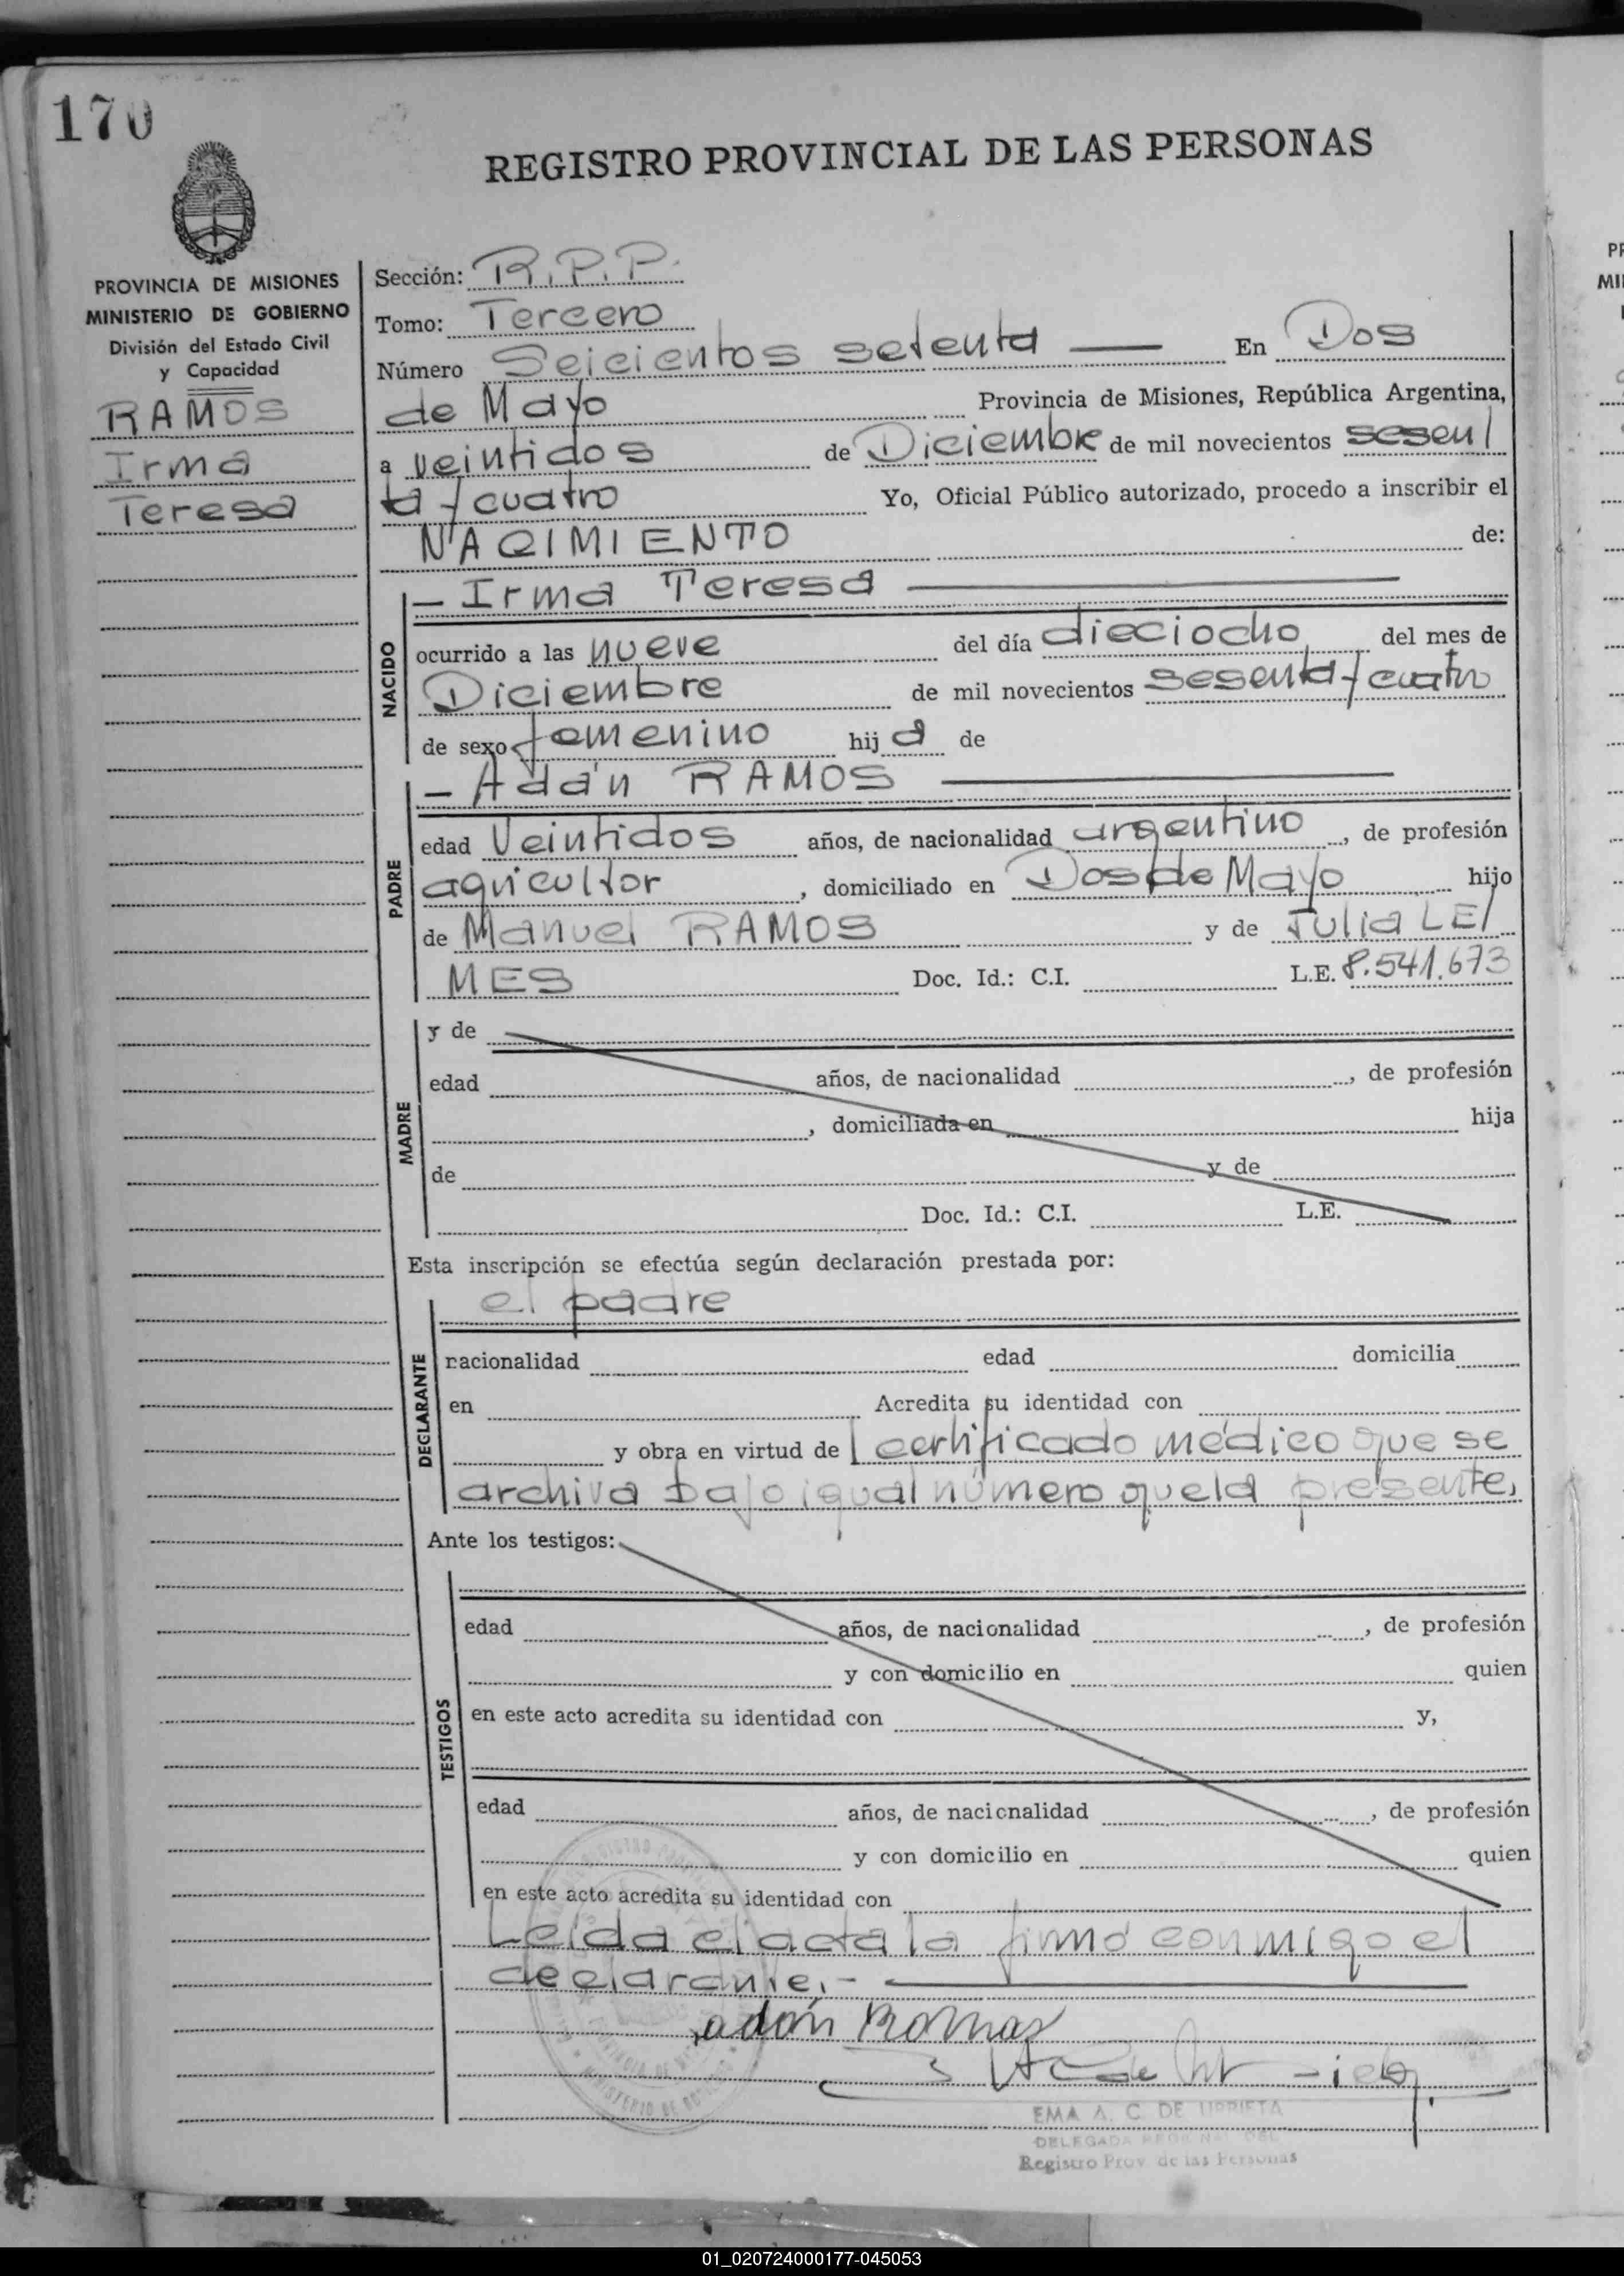 170
REGISTRO PROVINCIAL DE LAS PERSONAS
PROVINCIA DE MISIONES
MINISTERIO DE GOBIERNO
División del Estado Civil
y Capacidad
RAMOS
Irma
Teresa
Sección: R.P.P.
Tomo: Tercero
Número Seicientos setenta — En Dos
de Mayo Provincia de Misiones, República Argentina,
a veintidos de Diciembre de mil novecientos sesen/
ta y cuatro Yo, Oficial Público autorizado, procedo a inscribir el
NACIMIENTO de:
NACIDO
— Irma Teresa —
ocurrido a las nueve del día dieciocho del mes de
Diciembre de mil novecientos sesenta y cuatro
de sexo femenino hija de
PADRE
— Adán RAMOS —
edad Veintidos años, de nacionalidad argentino, de profesión
agricultor, domiciliado en Dos de Mayo hijo
de Manuel RAMOS y de Julia LE/
MES Doc. Id.: C.I. L.E. 8.541.673
MADRE
y de
edad años, de nacionalidad , de profesión
, domiciliada en hija
de y de
Doc. Id.: C.I. L.E.
Esta inscripción se efectúa según declaración prestada por:
DECLARANTE
el padre
nacionalidad edad domicilia
en Acredita su identidad con
y obra en virtud de certificado médico que se
archiva bajo igual número que la presente.
Ante los testigos:
TESTIGOS
edad años, de nacionalidad , de profesión
y con domicilio en quien
en este acto acredita su identidad con y,
edad años, de nacionalidad , de profesión
y con domicilio en quien
en este acto acredita su identidad con
Leida el acta la firmó conmigo el
declarante.- —
adán Ramos
EMA A. C. DE URRIETA
DELEGADA
Registro Prov. de las Personas
MINISTERIO DE GOBIERNO
01_020724000177-045053